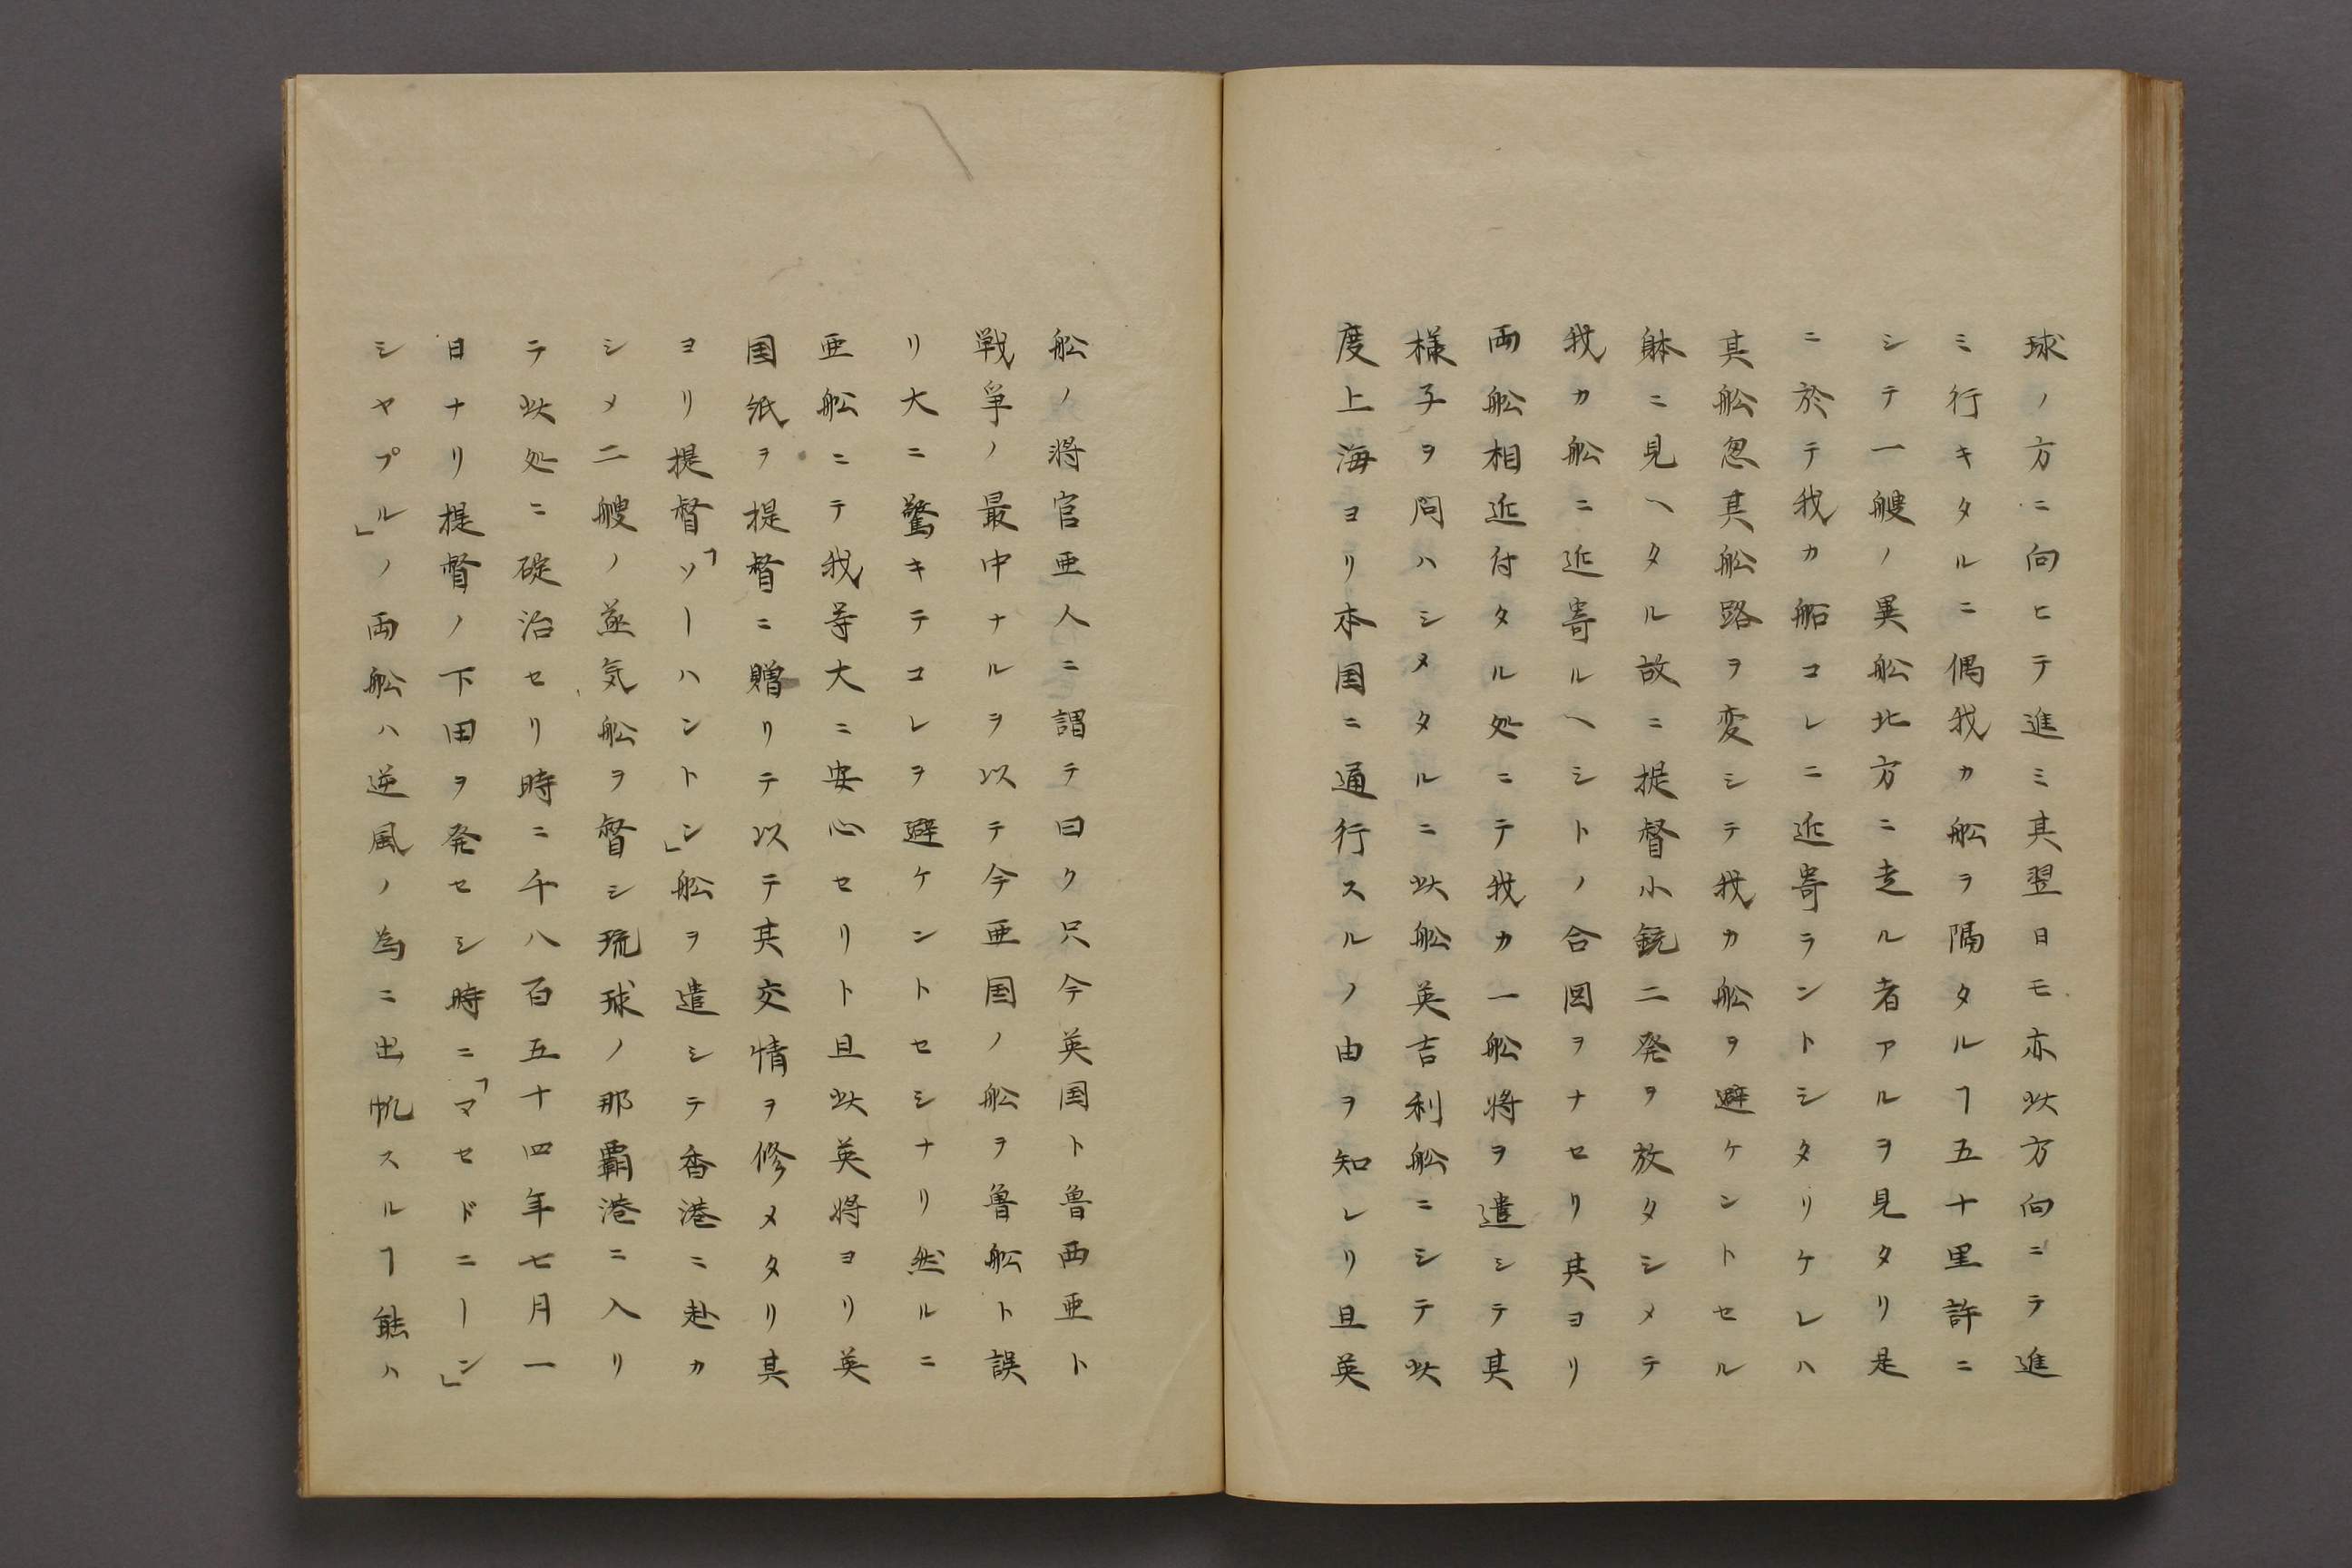 球ノ方ニ向ヒテ進ミ其翌日モ亦此方向ニテ進
ミ行キタルニ偶我カ舩ヲ隔タルヿ五十里許ニ
シテ一艘ノ異舩北方ニ走ル者アルヲ見タリ是
ニ於テ我カ船コレニ近寄ラントシタリケレハ
其舩忽其舩路ヲ変シテ我カ舩ヲ避ケントセル
躰ニ見ヘタル故ニ提督小銃二発ヲ放タシメテ
我カ舩ニ近寄ルヘシトノ合図ヲナセリ其ヨリ
両舩相近付タル処ニテ我カ一舩将ヲ遣シテ其
様子ヲ問ハシメタルニ此舩英吉利舩ニシテ此
度上海ヨリ本国ニ通行スルノ由ヲ知レリ且英
舩ノ将官亜人ニ謂テ曰ク只今英国ト魯西亜ト
戦争ノ最中ナルヲ以テ今亜国ノ舩ヲ魯舩ト誤
リ大ニ驚キテコレヲ避ケントセシナリ然ルニ
亜舩ニテ我等大ニ安心セリト且此英将ヨリ英
国紙ヲ提督ニ贈リテ以テ其交情ヲ修メタリ其
ヨリ提督「ソーハントン」舩ヲ遣シテ香港ニ赴カ
シメ二艘ノ蒸気舩ヲ督シ琉球ノ那覇港ニ入リ
テ此処ニ碇泊セリ時ニ千八百五十四年七月一
日ナリ提督ノ下田ヲ発セシ時ニ「マセドニーン」
シャプル」ノ両舩ハ逆風ノ為ニ出帆スルヿ能ハ